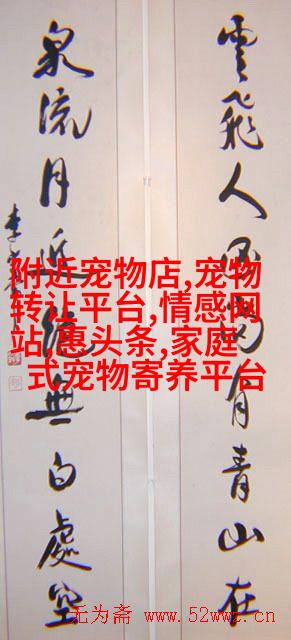 雲飛人有青山在
泉流月無白處空
李
附近宠物店,宠物
转让平台,情感网
站,惠头条,家庭
式宠物寄养平台
无为斋 www.52wwz.cn